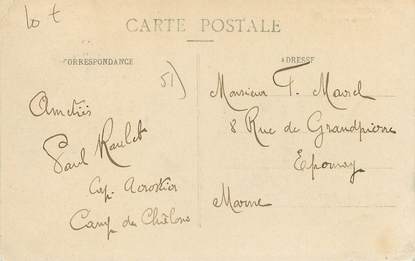 10 €
CARTE POSTALE
CORRESPONDANCE
ADRESSE
51)
Amitiés
Paul
Cap. Aérostier
Camp de Châlons
Monsieur F. Marel
8 Rue de Grandpierre
Epernay
Marne